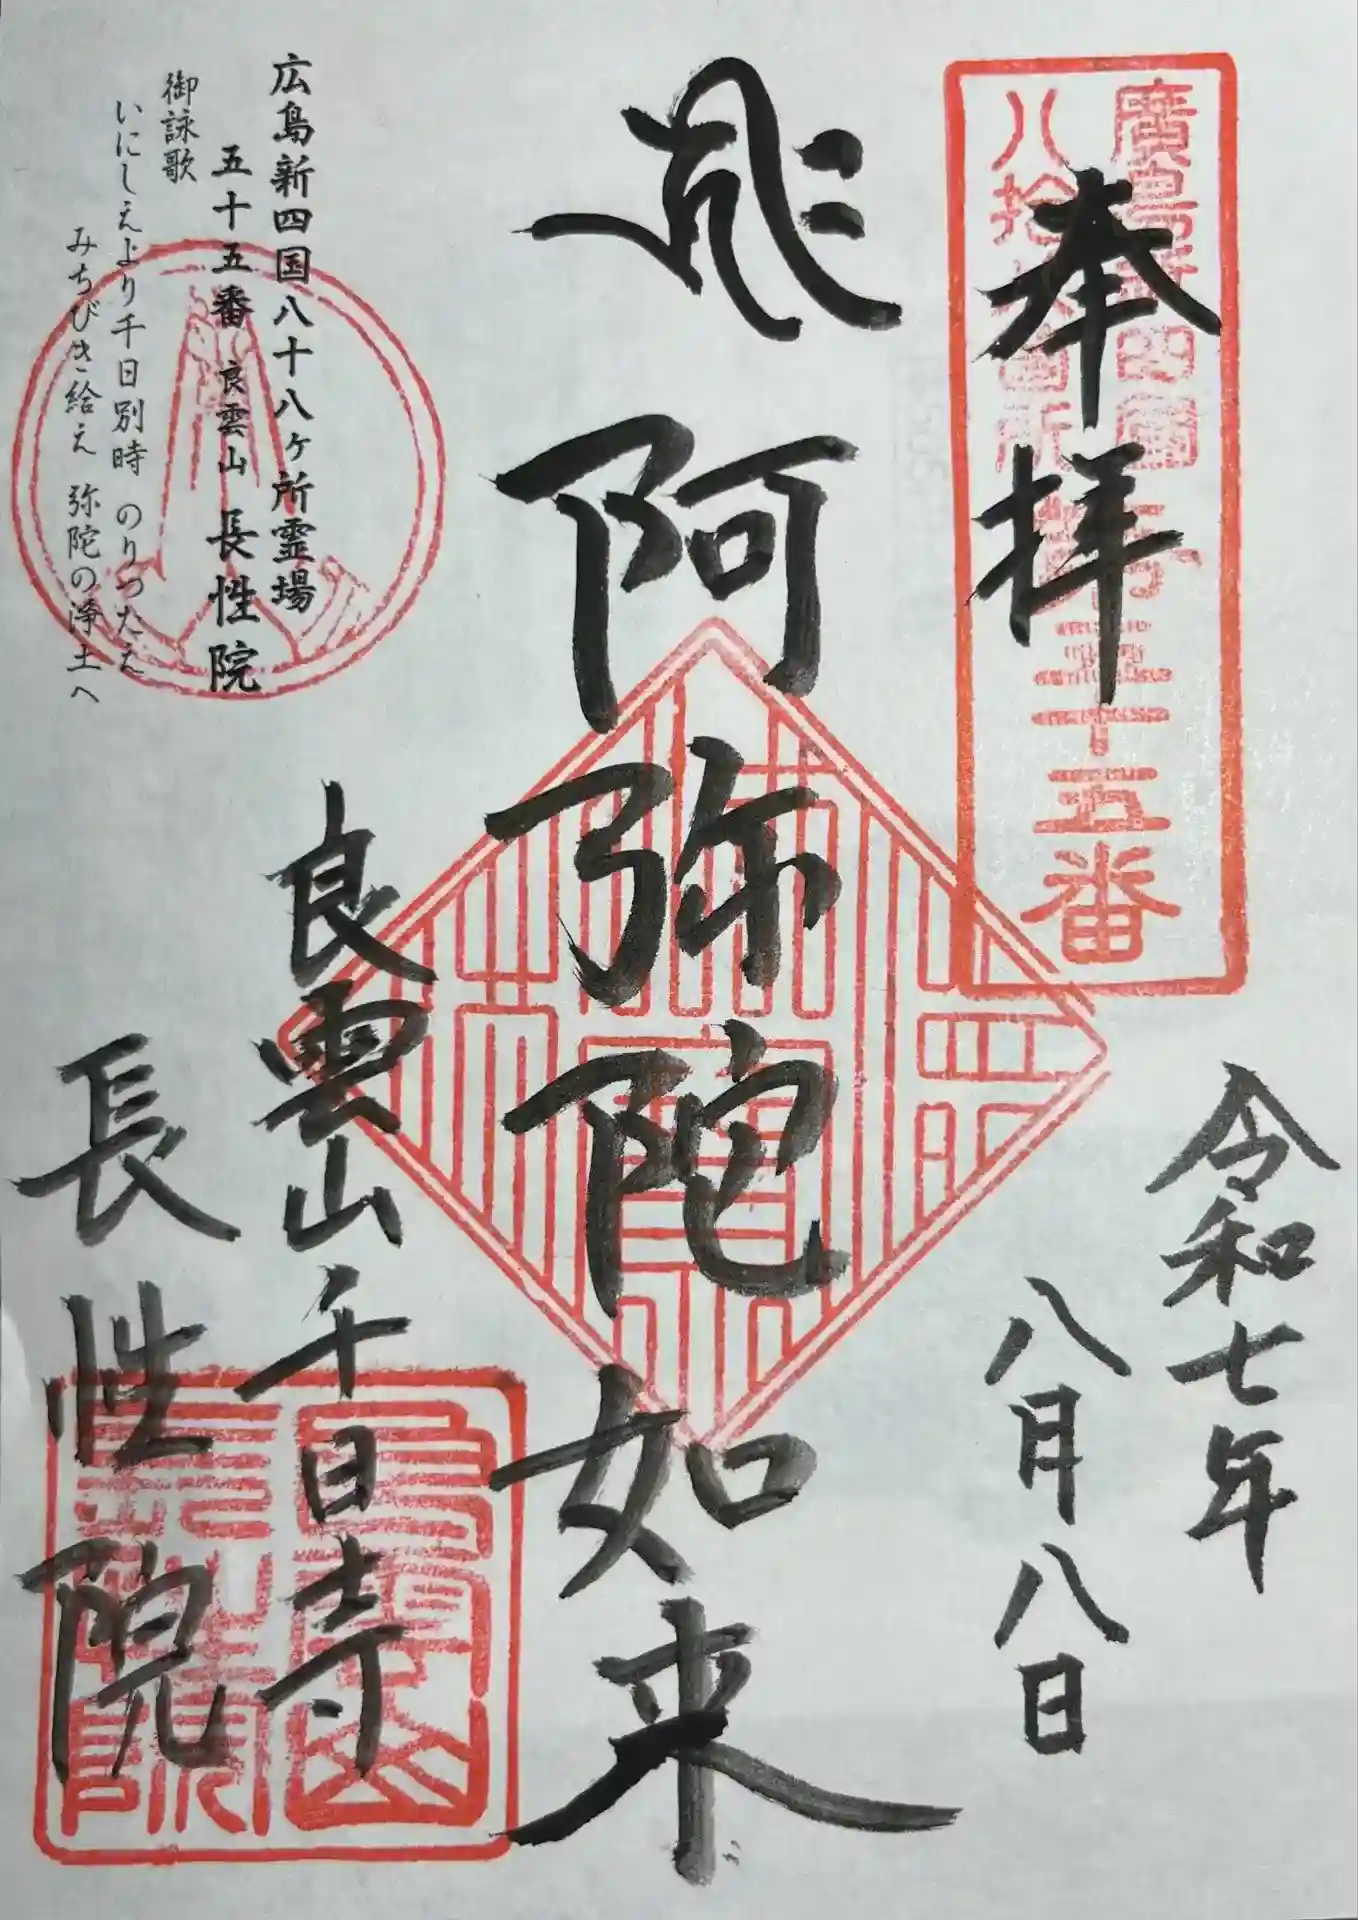 奉拝
廣島新四國
八拾八箇所
第五十五番
令和七年
八月八日
阿弥陀如来
良雲山千日寺
長性院
広島新四国八十八ヶ所霊場
五十五番 良雲山 長性院
御詠歌
いにしえより千日別時 のりつたえ
みちびき給え 弥陀の浄土へ